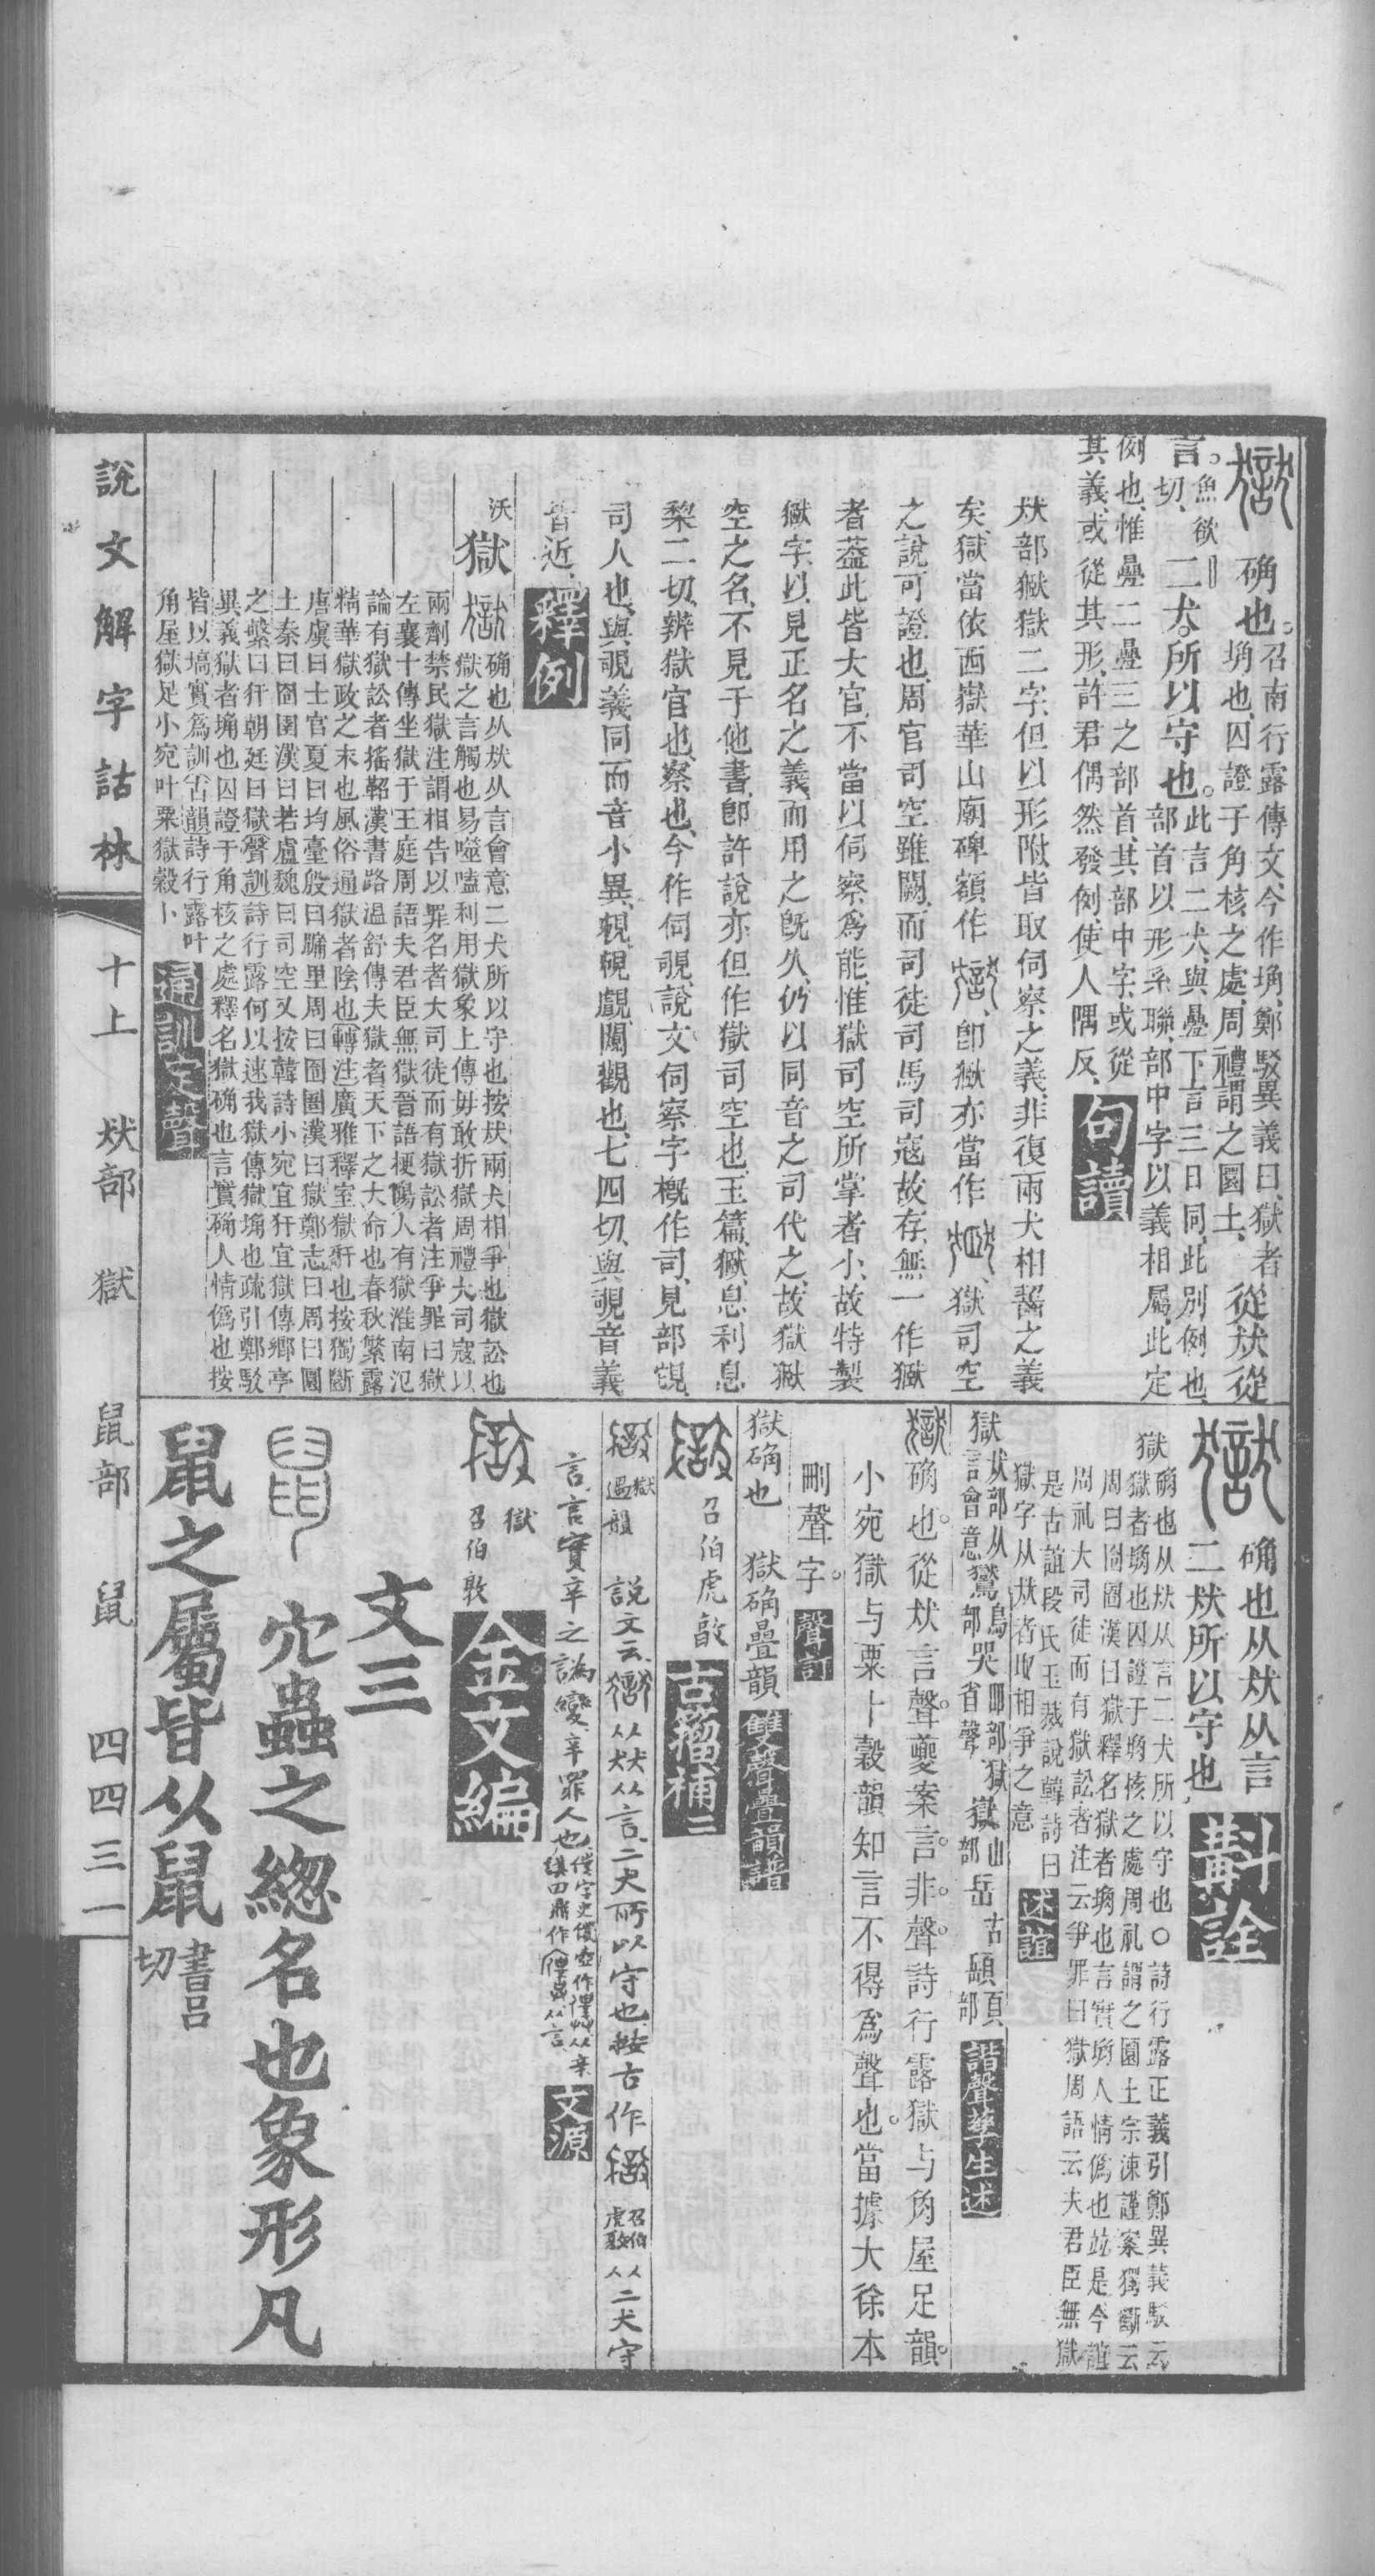 确也。召南行露傳文、今作埆、鄭駁異義曰、獄者
埆也、囚證于角核之處、周禮謂之圜土、從㹜從
言。魚欲切、二犬。所以守也。此言二犬、與疊下言三日同、此別例也、
部首以形系聯、部中字以義相屬、此定
例也、惟疊二疊三之部首、其部中字、或從
其義、或從其形、許君偶然發例、使人隅反、句讀
㹜部㺇獄二字、但以形附、皆取伺察之義、非復兩犬相齧之義
矣、獄當依西嶽華山廟碑額作卽㺇亦當作、獄司空
之說可證也、周官司空雖闕、而司徒司馬司寇故存、無一作㺇
者、葢此皆大官、不當以伺察爲能、惟獄司空所掌者小、故特製
㺇字、以見正名之義、而用之旣久、仍以同音之司代之、故獄㺇
空之名、不見于他書、卽許說亦但作獄司空也、玉篇、㺇、息利息
棃二切、辨獄官也、察也、今作伺覗、說文伺察字槪作司、見部覗、
司人也、與覗義同而音小異、覞、覗、覰、闚觀也、七四切、與覗音義
皆近、釋例
沃
獄
确也从㹜从言會意二犬所以守也按㹜兩犬相爭也獄訟也
獄之言觸也易噬嗑利用獄象上傳毋敢折獄周禮大司寇以
兩劑禁民獄注謂相告以罪名者大司徒而有獄訟者注爭罪曰獄
左襄十傳坐獄于王庭周語夫君臣無獄晉語梗陽人有獄淮南氾
論有獄訟者搖鞀漢書路溫舒傳夫獄者天下之大命也春秋繁露
精華獄政之末也風俗通獄者陰也轉注廣雅釋室獄犴也按獨斷
唐虞曰士官夏曰均臺殷曰牖里周曰囹圄漢曰獄鄭志曰周曰圜
土秦曰囹圄漢曰若盧魏曰司空又按韓詩小宛宜犴宜獄傳鄉亭
之繫曰犴朝廷曰獄聲訓詩行露何以速我獄傳獄埆也疏引鄭駁
異義獄者埆也囚證于角核之處釋名獄确也言實确人情僞也按
皆以塙實爲訓古韻詩行露叶
角屋獄足小宛叶粟獄穀卜
通訓定聲
确也从㹜从言
二㹜所以守也斠詮
獄
确也从㹜从言二犬所以守也○詩行露正義引鄭異義駁云
獄者埆也囚證于埆核之處周礼謂之圜土宗涑謹案獨斷云
周曰囹圄漢曰獄釋名獄者埆也言實埆人情僞也竝是今誼
周礼大司徒而有獄訟者注云爭罪曰獄周語云夫君臣無獄
是古誼段氏玉裁說韓詩曰
獄字从㹜者取相爭之意述誼
獄㹜部从言會意鸑鳥部哭吅部獄省聲嶽山部岳古䫷頁部諧聲孳生述
确也。從㹜言聲。夔案言。非。聲。詩行露獄与角屋足韻。
小宛獄与粟卜穀韻知言不得爲聲也。當據大徐本
刪聲字。聲訂
獄确也　獄确疊韻雙聲疊韻譜
召伯虎敦古籀補二
獄遇韻　說文云从㹜从言、二犬所以守也、按古作召伯虎敦从二犬守
言、言實辛之譌變、辛罪人也文源
獄
召伯敦金文編
文三
穴蟲之總名也象形凡
鼠之屬皆从鼠書呂切
說文解字詁林
十上　㹜部　獄　鼠部　鼠　四四三一